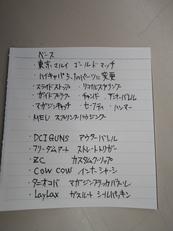 ベース
・東京マルイ ゴールドマッチ
・ハイキャパ5.1のパーツに変更
・スライドストップ ・リコイルスプリング
・ガイドプラグ ・チャンバー ・アウターバレル
・マガジンキャッチ ・セーフティ ・ハンマー
・MEU スプリングハウジング
・DCIGUNS アウターバレル
・フリーダムアート ストレートトリガー
・ZC カスタムグリップ
・COW COW インナーシャーシ
・タニオコバ マガジン
・LayLax ガスルート シールパッキン